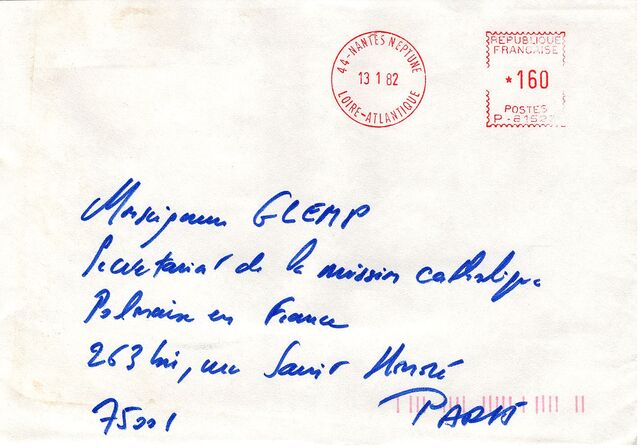 44-NANTES NEPTUNE
13 1 82
LOIRE-ATLANTIQUE
RÉPUBLIQUE
FRANÇAISE
*160
POSTES
P-81527
Monseigneur GLEMP
Secretariat de la mission catholique
Polonaise en France
263 bis, rue Saint Honoré
75001 PARIS